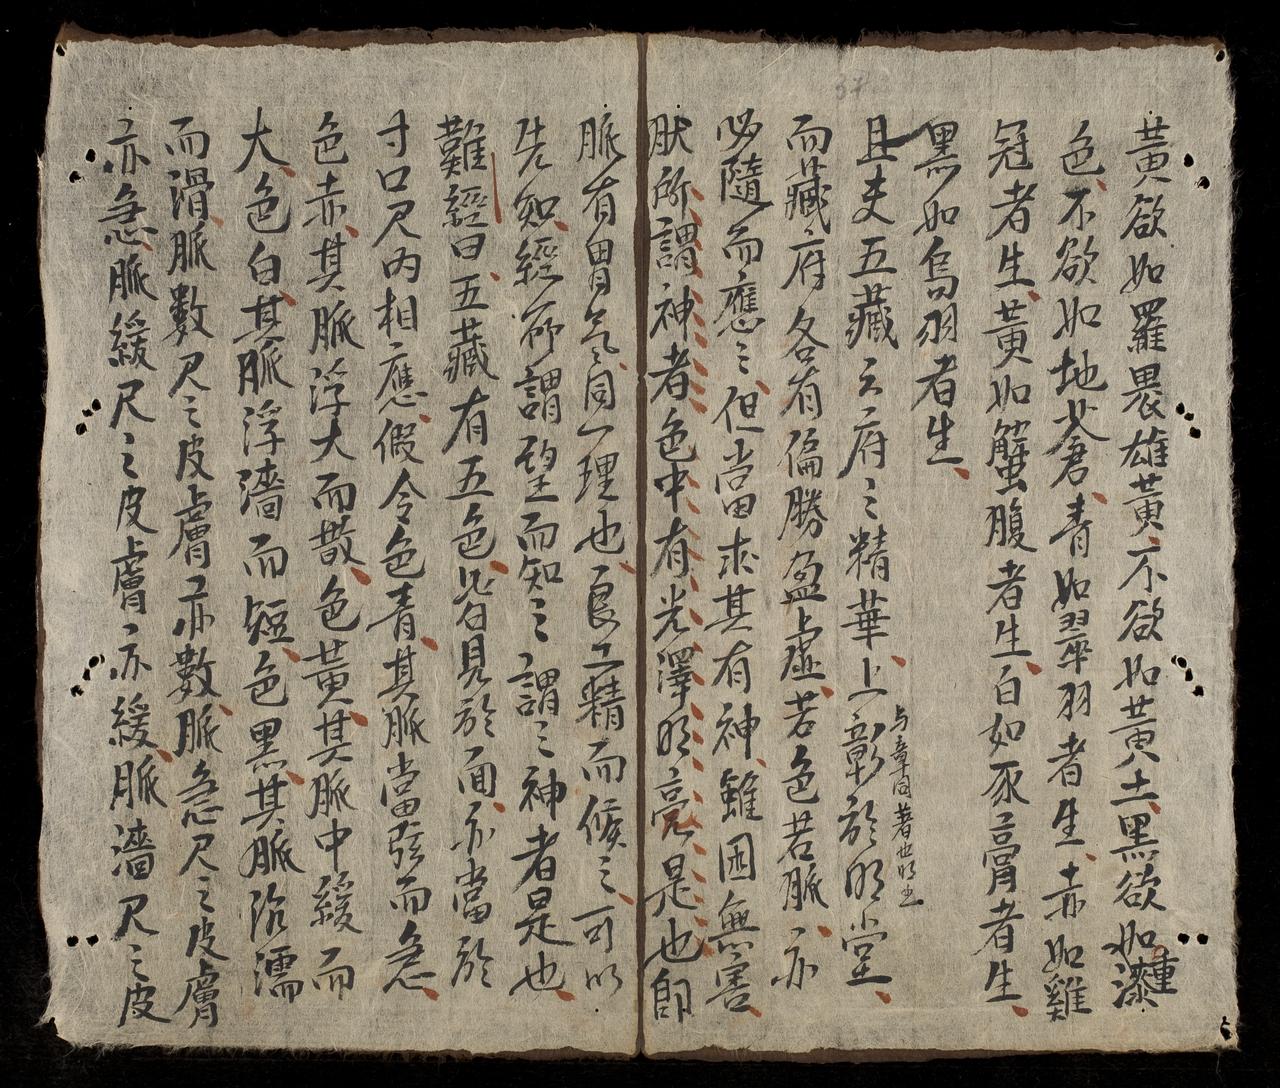 黃欲如羅裹雄黃不欲如黃土黑欲如重漆
色不欲如地蒼青如翠羽者生赤如雞
冠者生黃如蟹腹者生白如豕膏者生
黑如烏羽者生
且夫五藏六府之精華上彰於明堂
与章同著也明也
而藏府各有偏勝盈虛若色若脈亦
必隨而應之但當求其有神雖困無害
肰所謂神者色中有光澤明亮是也即
脈有胃气同一理也良工精而候之可以
先知經所謂望而知之謂之神者是也
難經曰五藏有五色皆見於面亦當於
寸口尺內相應假令色青其脈當弦而急
色赤其脈浮大而散色黃其脈中緩而
大色白其脈浮濇而短色黑其脈沉濡
而滑脈數尺之皮膚亦數脈急尺之皮膚
亦急脈緩尺之皮膚亦緩脈濇尺之皮
37